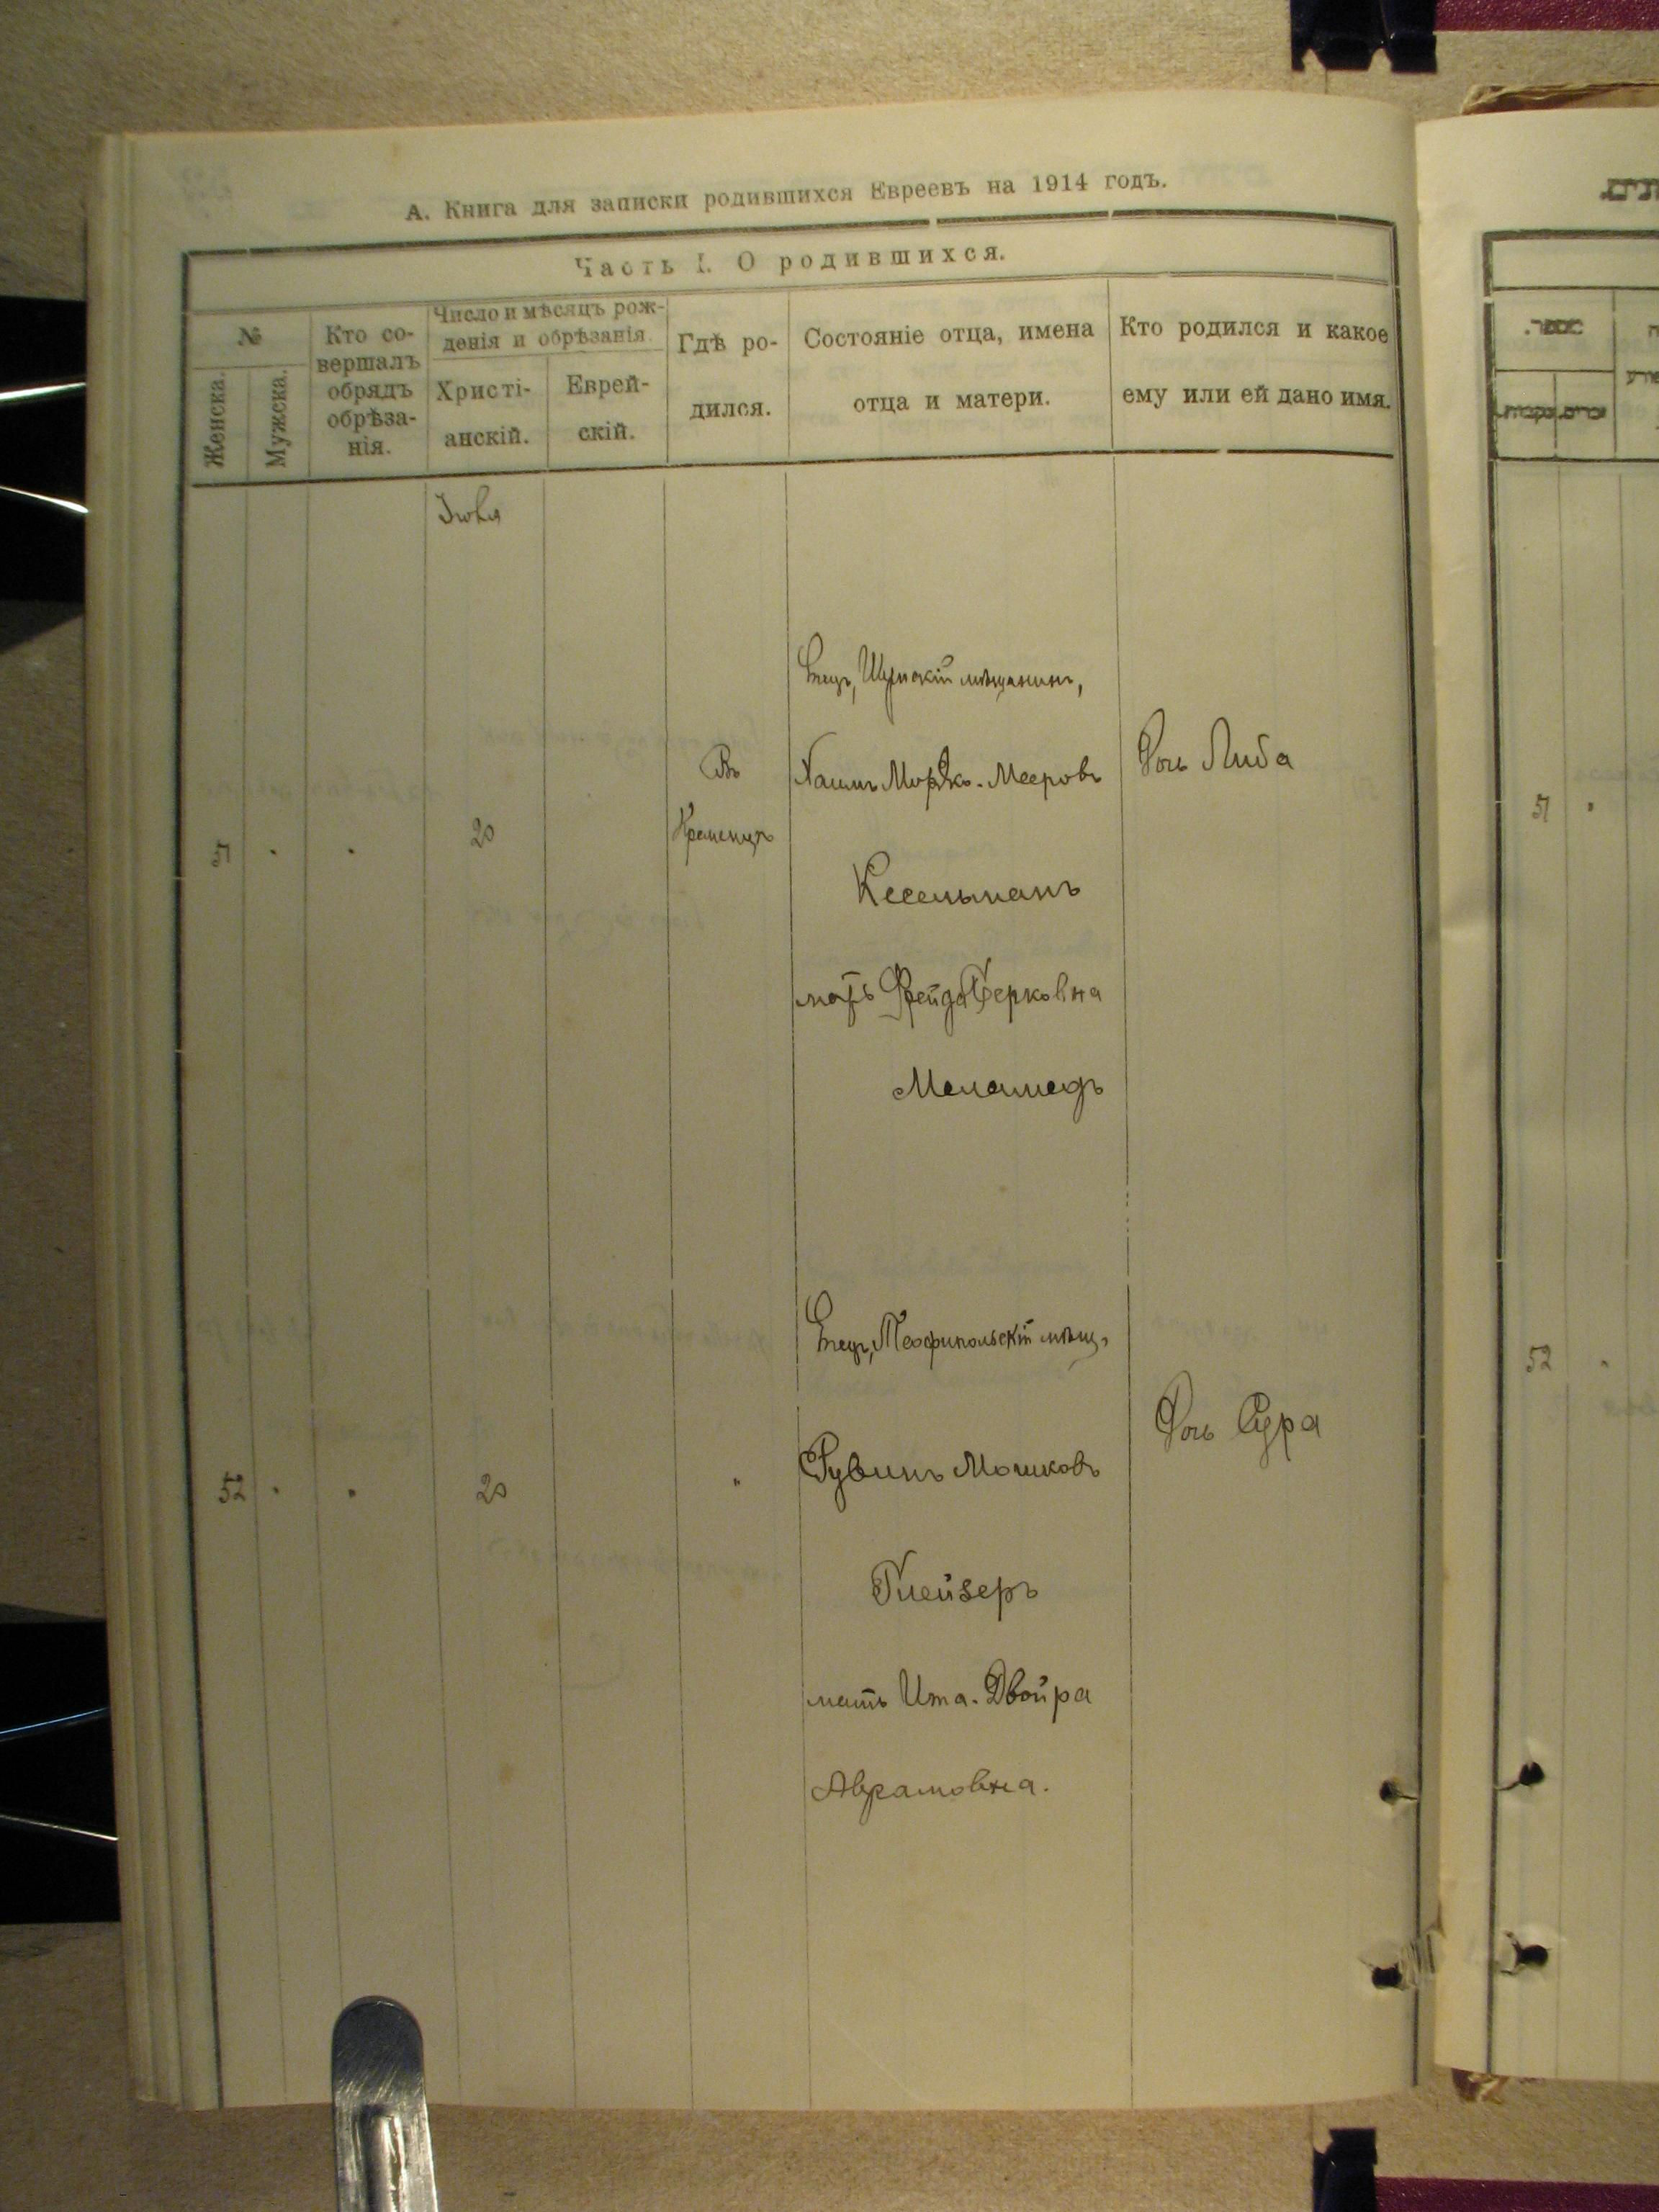 А. Книга для записки родившихся Евреевъ на 1914 годъ.
Часть I. О родившихся.
№
Женска.
Мужска.
Кто со-
вершалъ
обрядъ
обрѣза-
нія.
Число и мѣсяцъ рож-
денія и обрѣзанія.
Христі-
анскій.
Еврей-
скій.
Гдѣ ро-
дился.
Состояніе отца, имена
отца и матери.
Кто родился и какое
ему или ей дано имя.
51
20
Въ
Кременцѣ
Отецъ, Шумскій мѣщанинъ,
Хаимъ Мордко-Мееровъ
Кесельманъ
мать Фрейда Берковна
Меламедъ
Дочь Либа
52
20
"
Отецъ, Теофипольскій мѣщ.
Рувинъ Мошковъ
Глейзеръ
мать Ита-Двойра
Аврамовна.
Дочь Сура
51
52